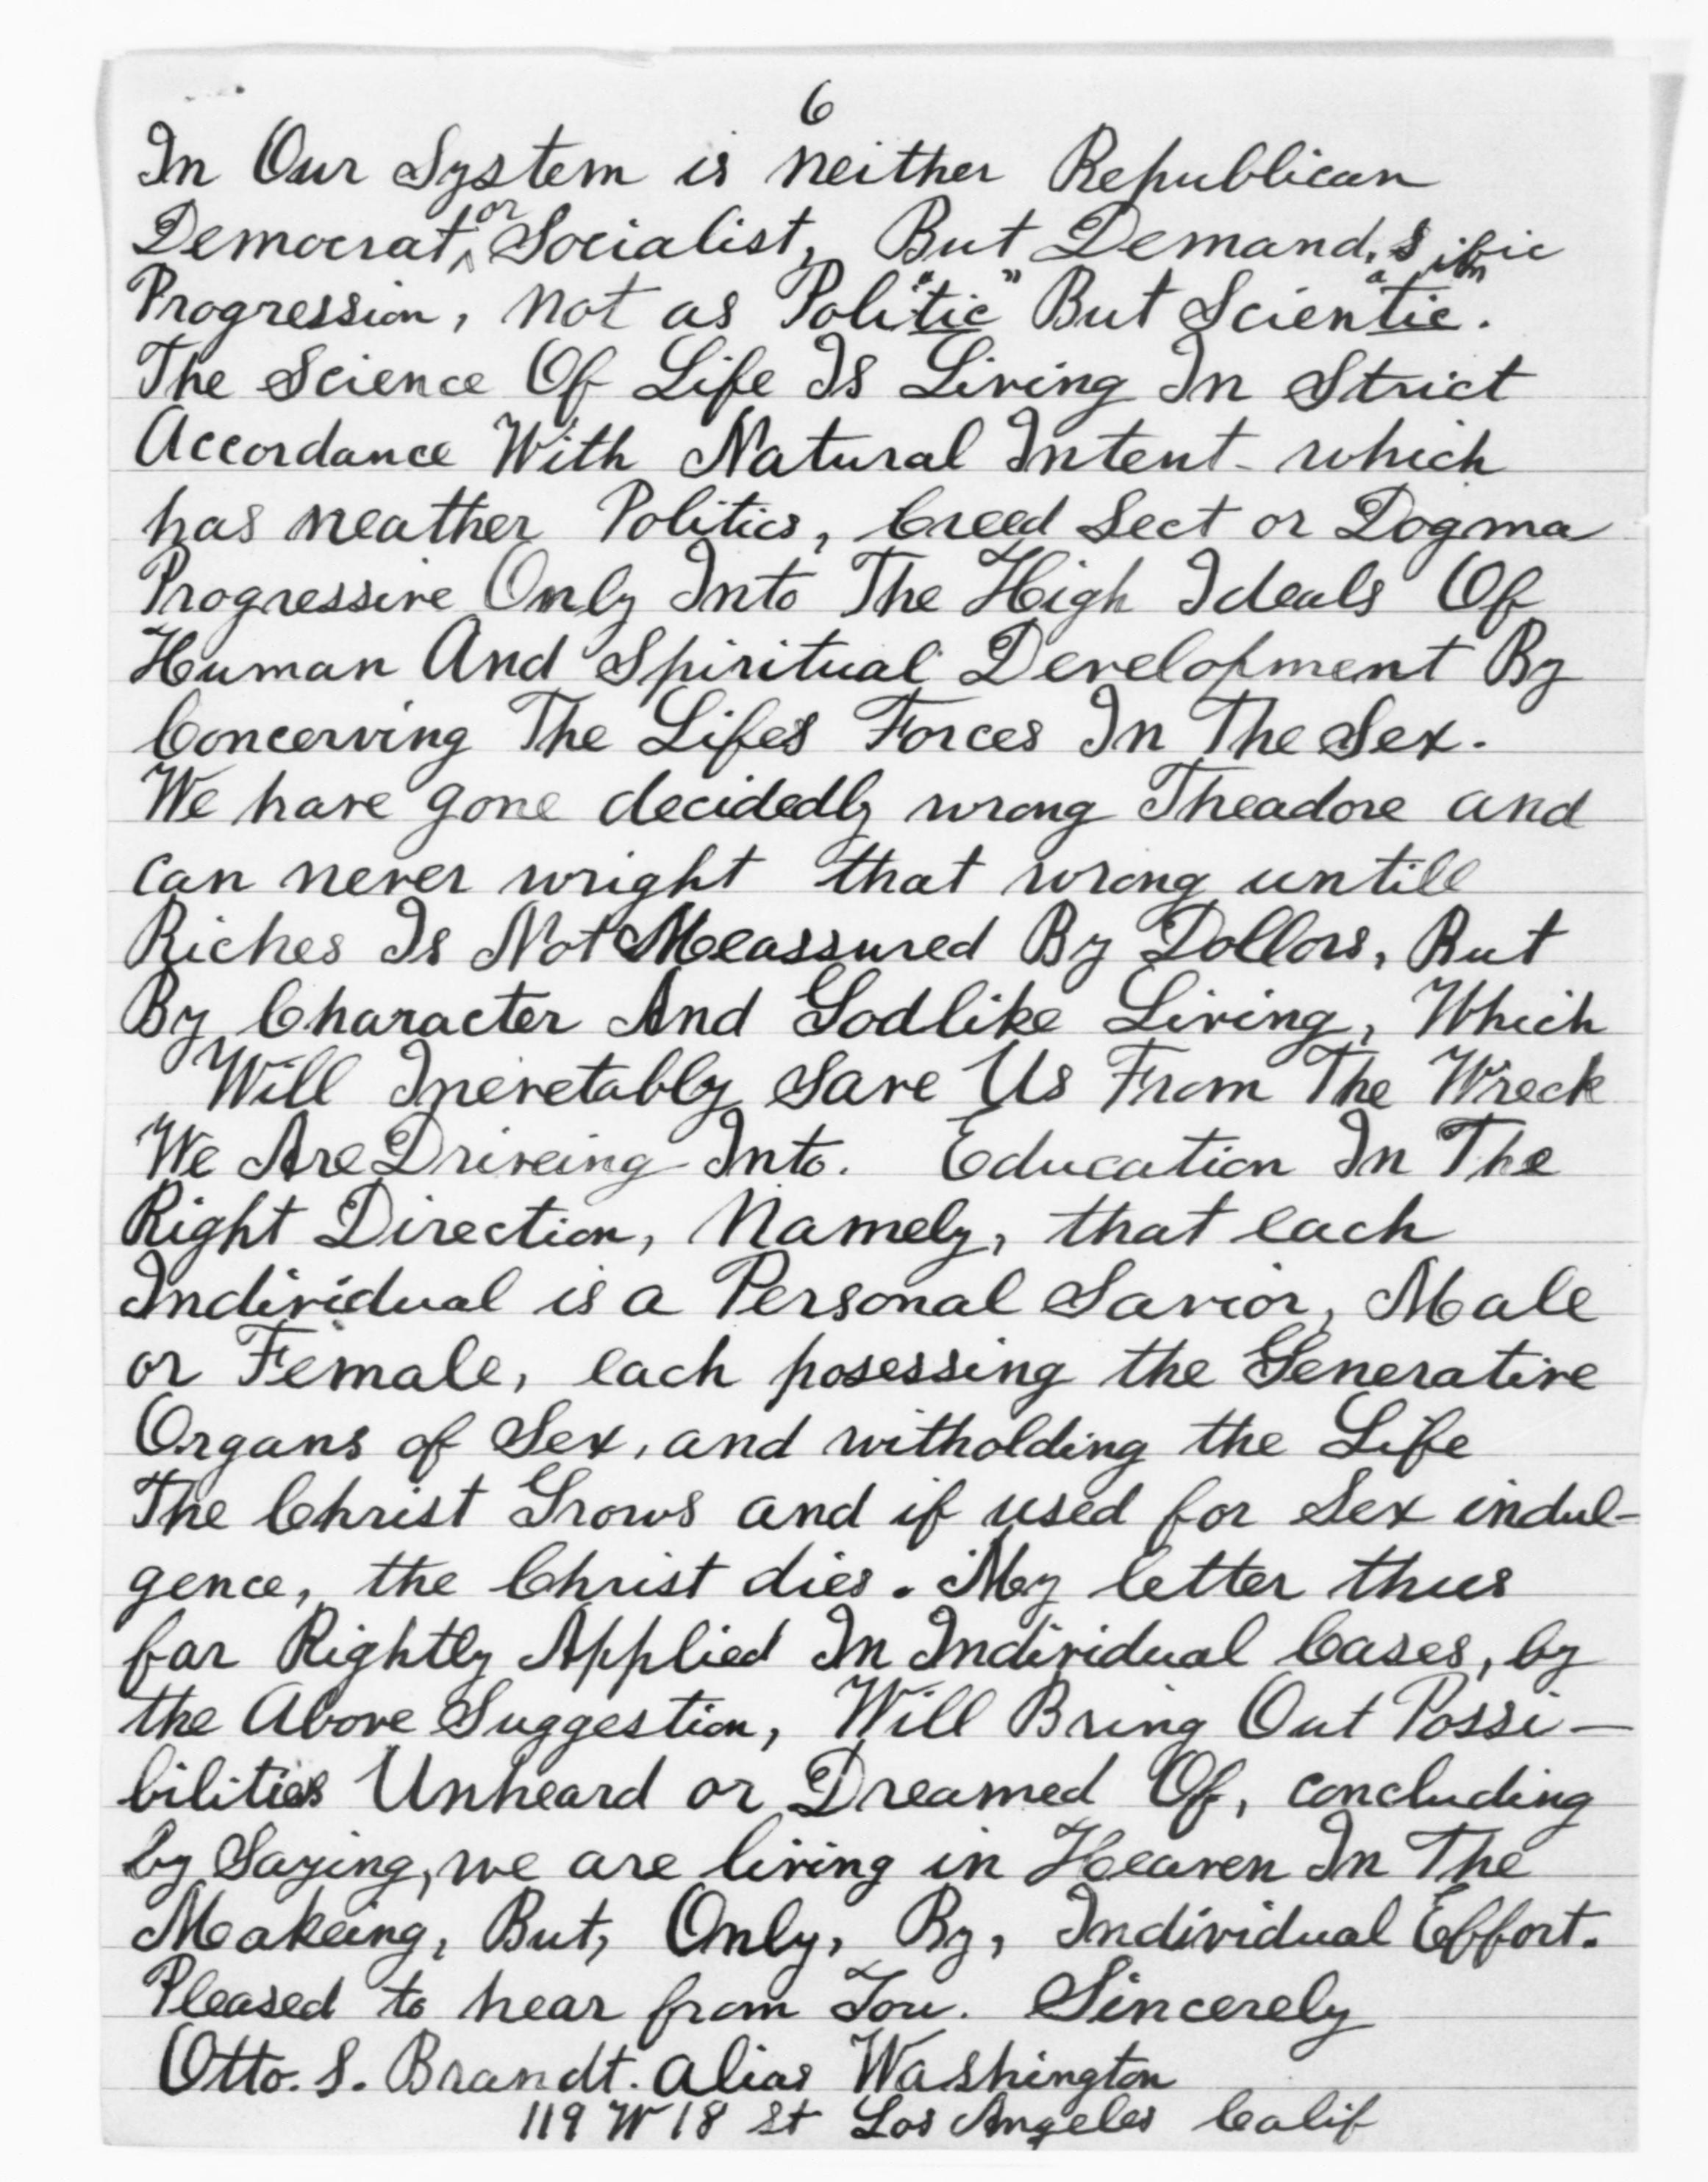 6
In Our System is neither Republican
Democrat, or Socialist, But Demands
Progression, not as Poli"tic" But Scientific.
The Science Of Life Is Living In Strict
Accordance With Natural Intent - which
has neather Politics, Creed Sect or Dogma
Progressive Only Into The High Ideals Of
Human And Spiritual Development By
Concerving The Lifes Forces In The Sex.
We have gone decidedly wrong Theadore and
can never wright that wrong untill
Riches Is Not Meassured By Dollars, But
By Character And Godlike Living, Which
Will Inevetably Save Us From The Wreck
We Are Driveing Into. Education In The
Right Direction, Namely, that each
Individual is a Personal Savior, Male
or Female, each posessing the Generative
Organs of Sex, and witholding the Life
The Christ Grows and if used for Sex indul-
gence, the Christ dies. My letter thus
far Rightly Applied In Individual Cases, by
the Above Suggestion, Will Bring Out Possi-
bilities Unheard or Dreamed Of, concluding
by Saying, we are living in Heaven In The
Makeing, But, Only, By, Individual Effort.
Pleased to hear from You. Sincerely
Otto. S. Brandt. alias Washington
119 W 18 St Los Angeles Calif